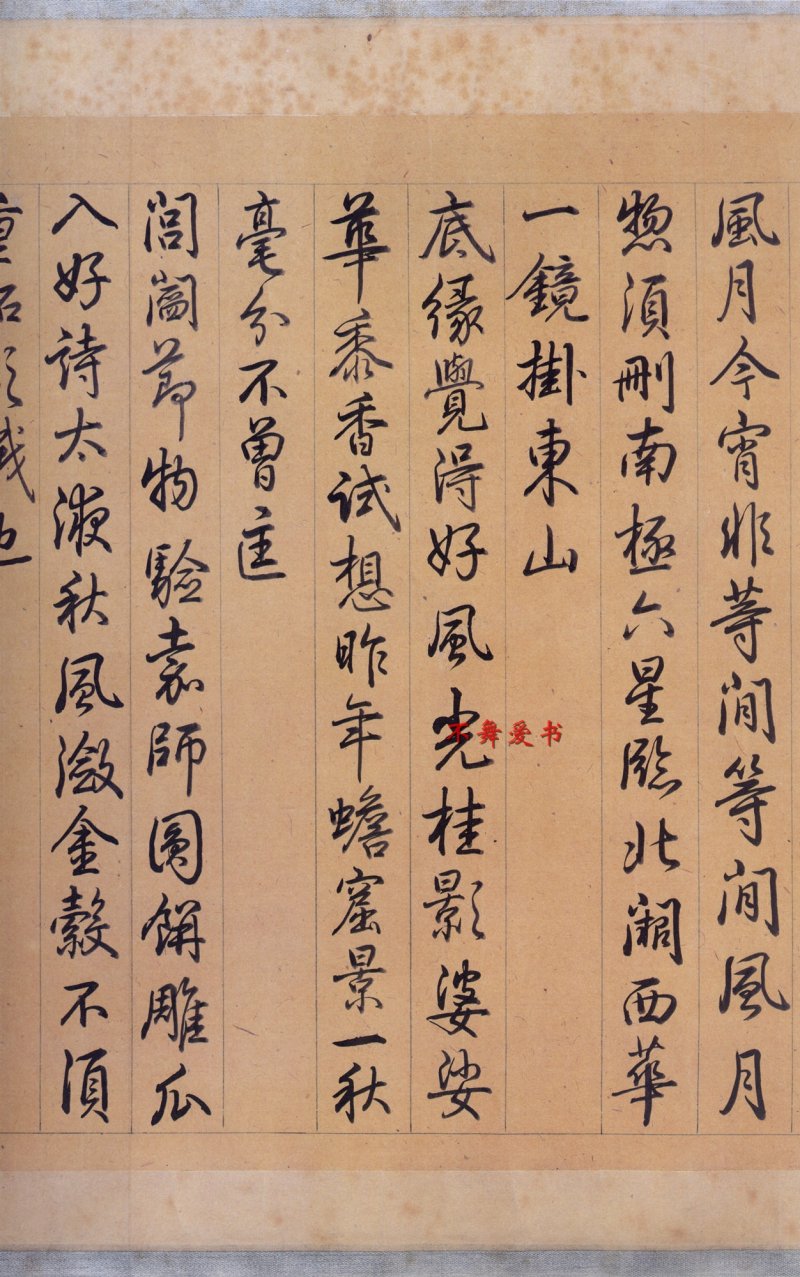 風月今宵非等閒等閒風月
惣須刪南極六星臨北闕西華
一鏡掛東山
底緣覺得好風光桂影婆娑
華黍香試想昨年蟾窟景一秋
毫分不曾匡
閶闔節物驗嘉師圓餅雕瓜
入好詩太液秋風瀲金縠不須
重
舞爱书